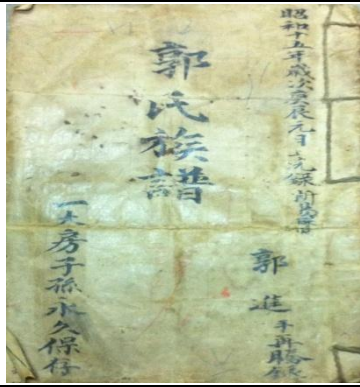 昭和十五年歲次庚辰元月
郭氏族譜
郭進手再謄錄
一大房子孫永久保存